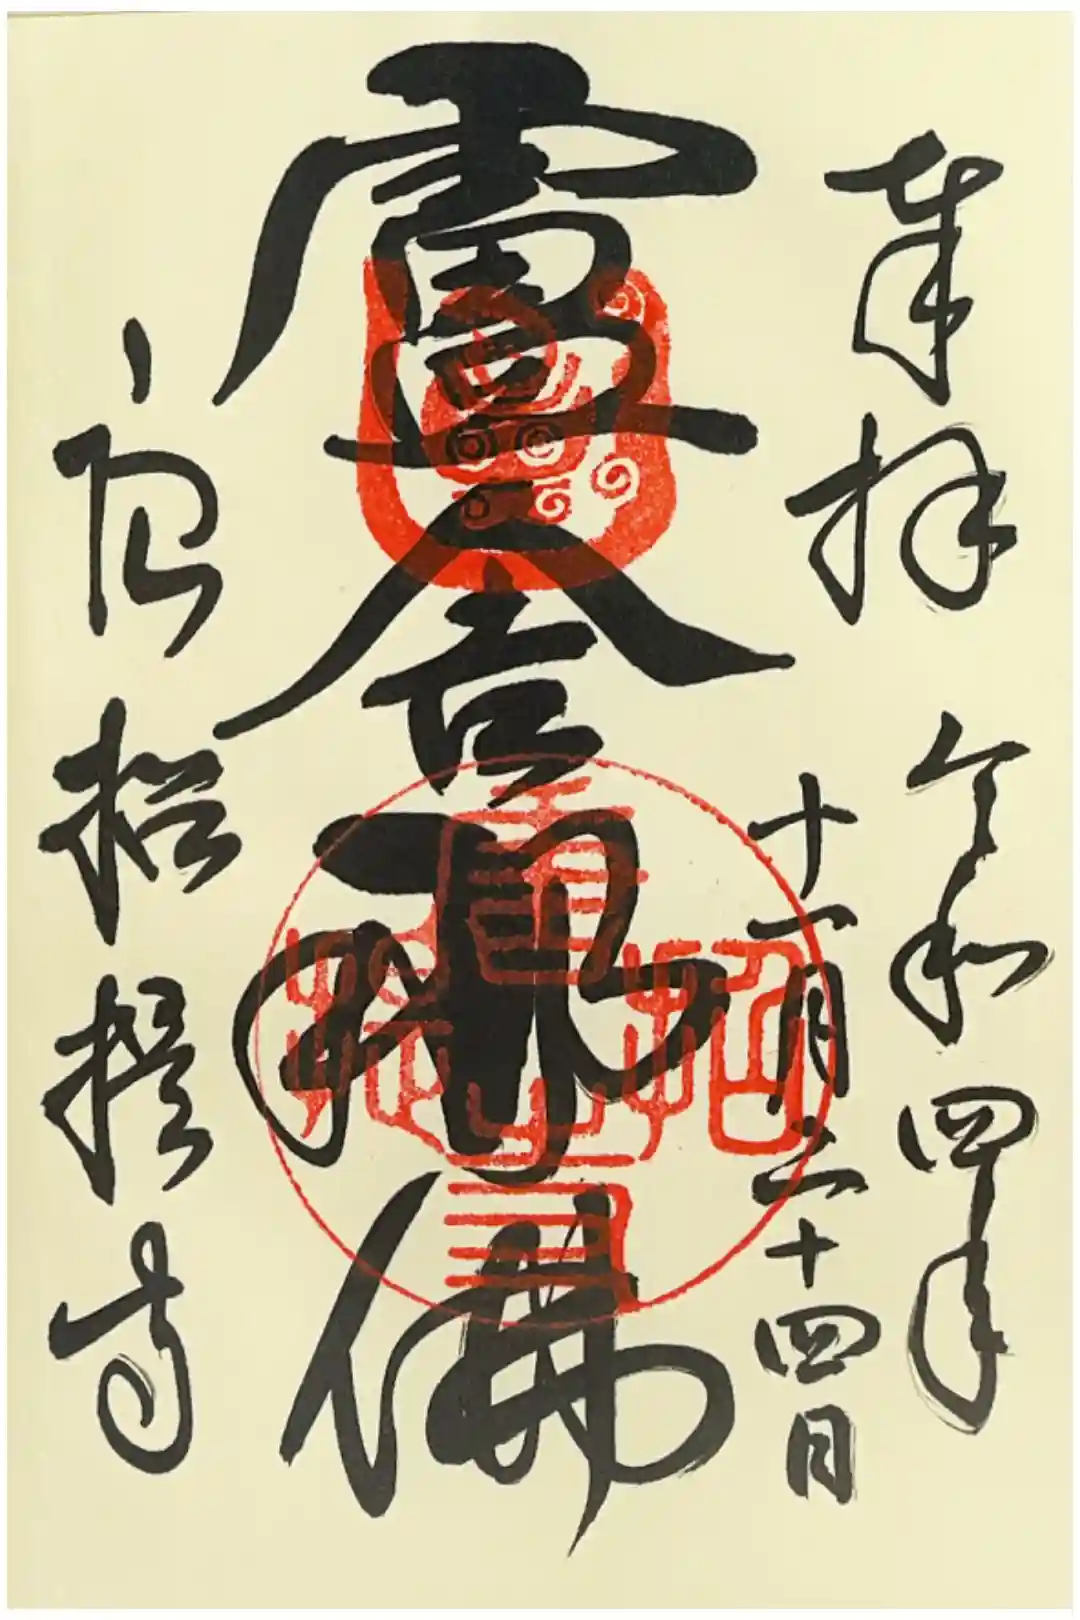 奉拝 令和四年
十一月二十四日
盧舎那佛
唐招提寺